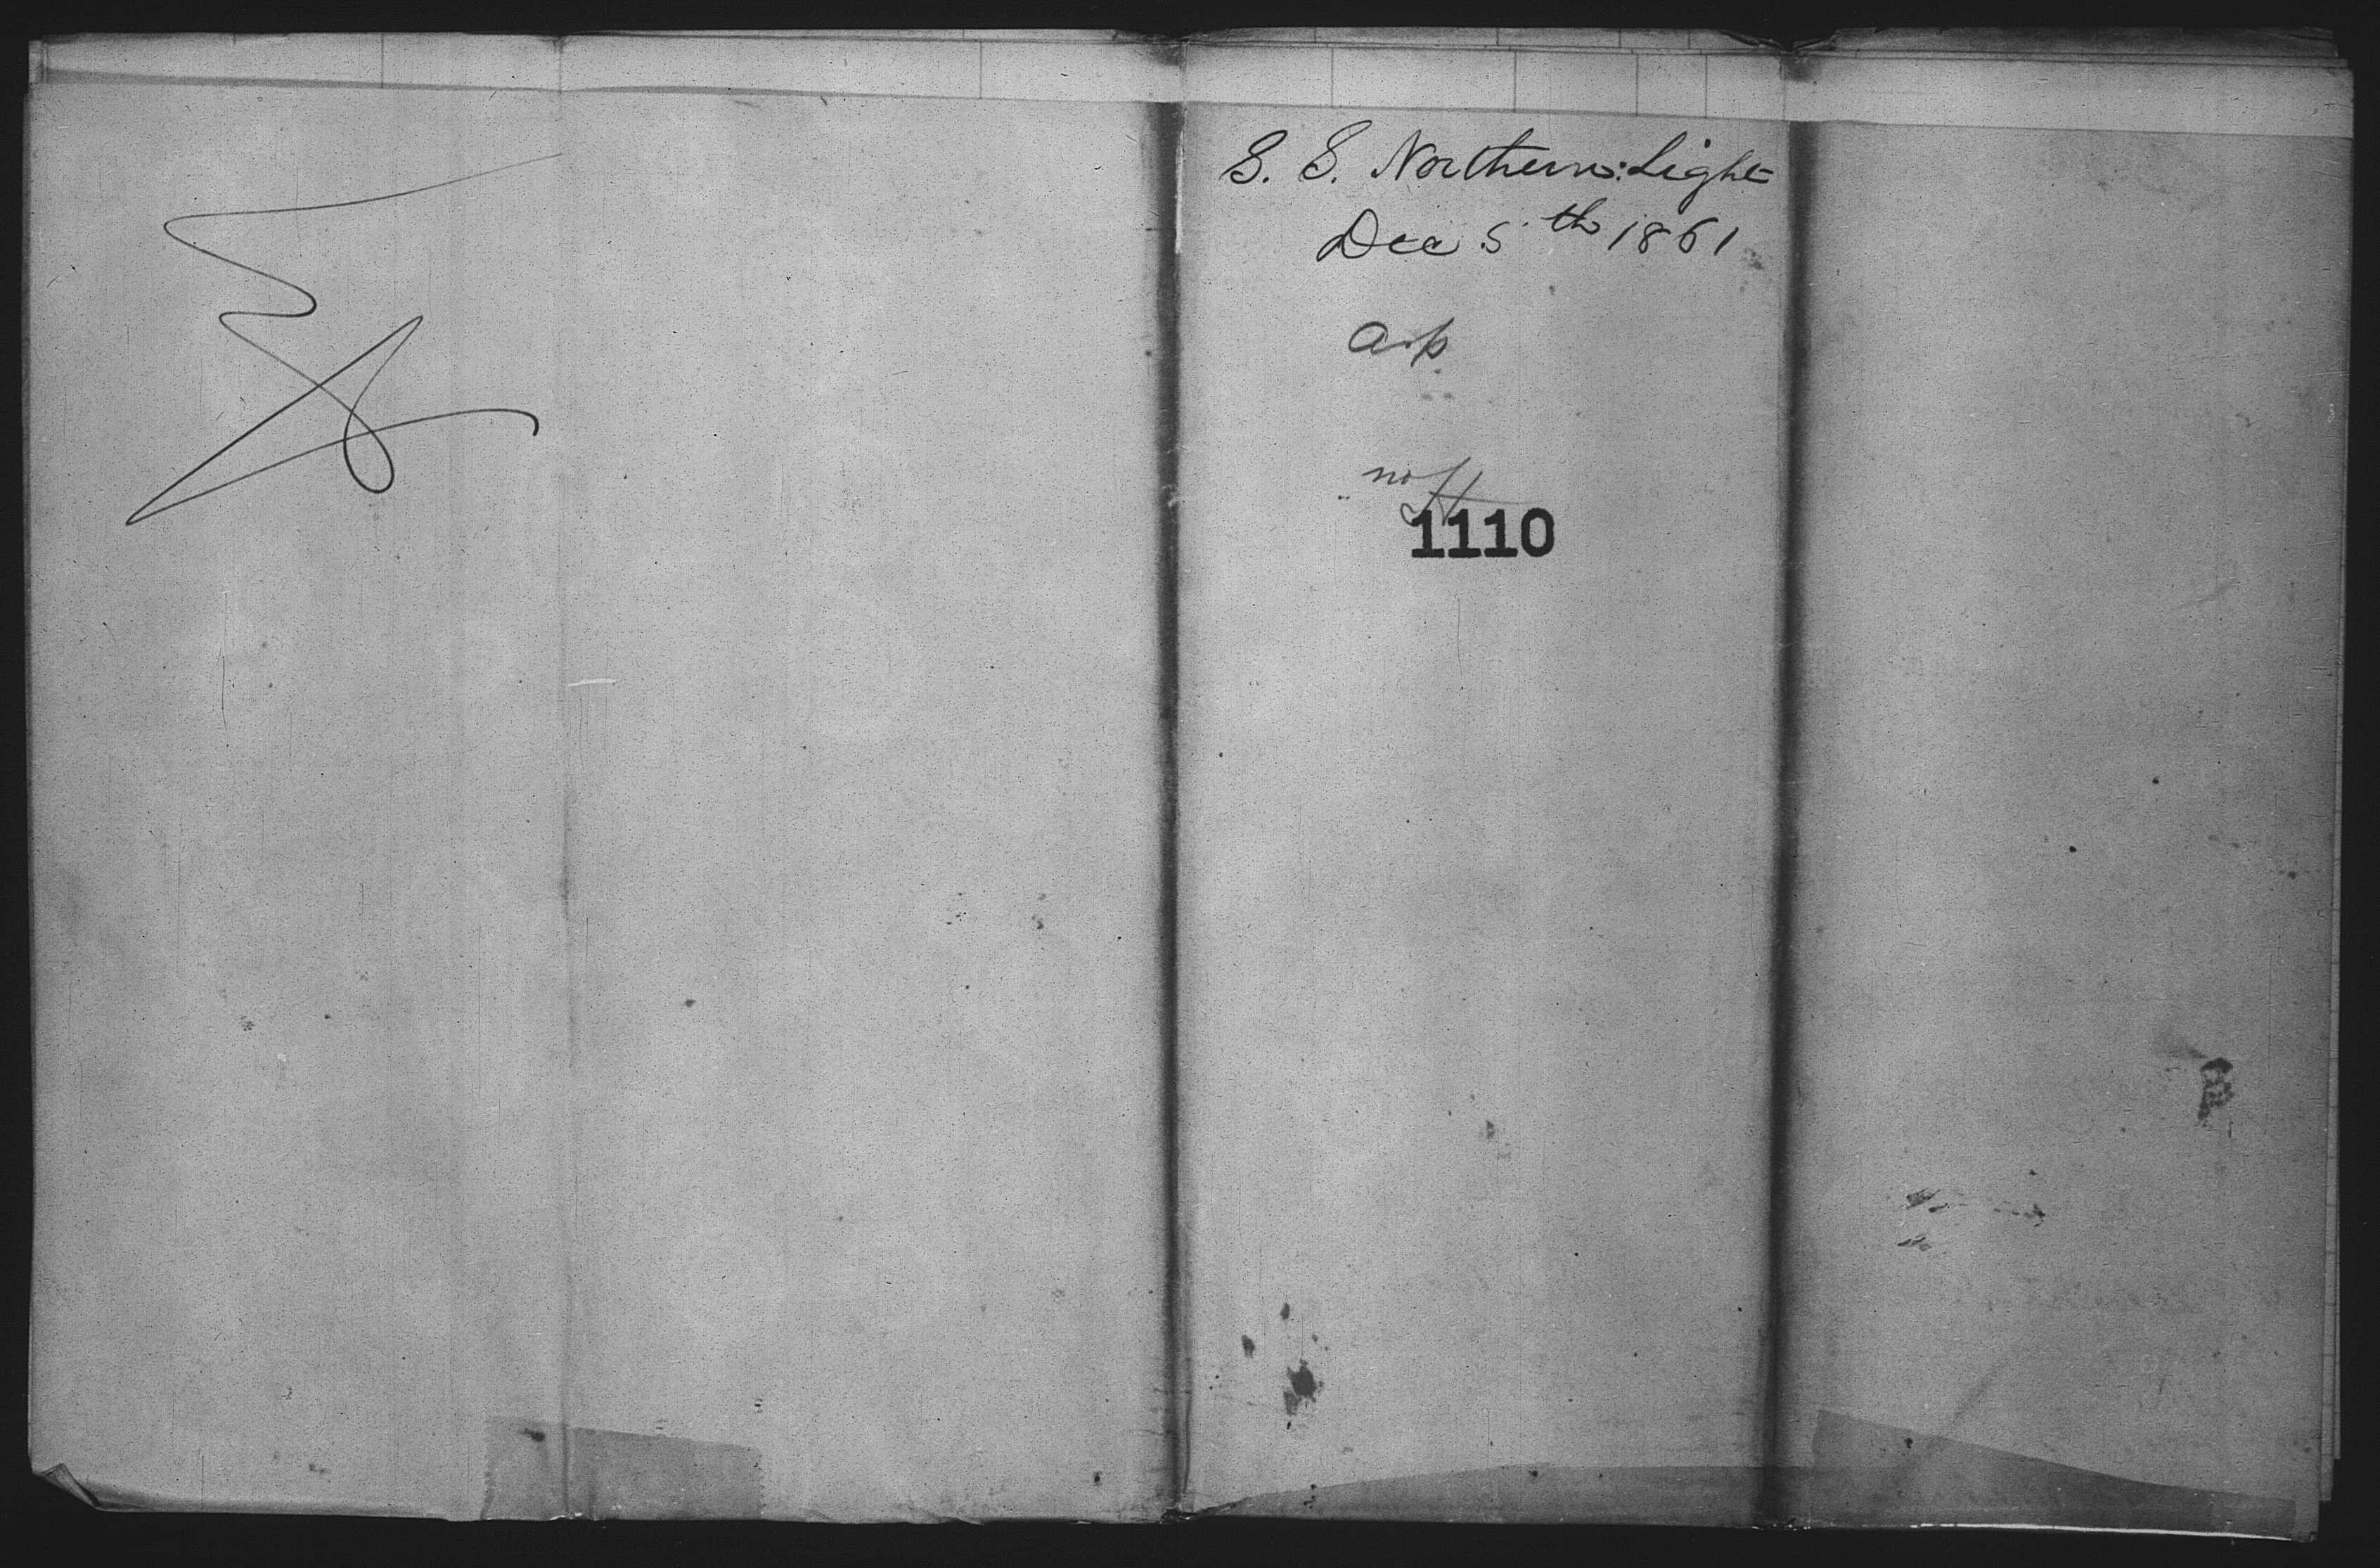 S. S. Northern Light
Dec 5th 1861
no
1110